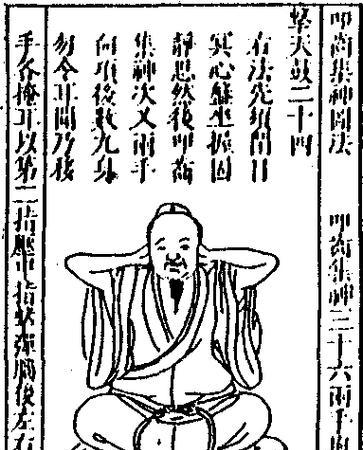 叩齒集神圖法　叩齒集神三十六兩手
擊天鼓二十四
右法先須閉目
冥心盤坐握固
靜思然後叩齒
集神次叉兩手
向項後數九息
勿令耳聞乃移
手各掩耳以第二指壓中指擊彈腦後左右